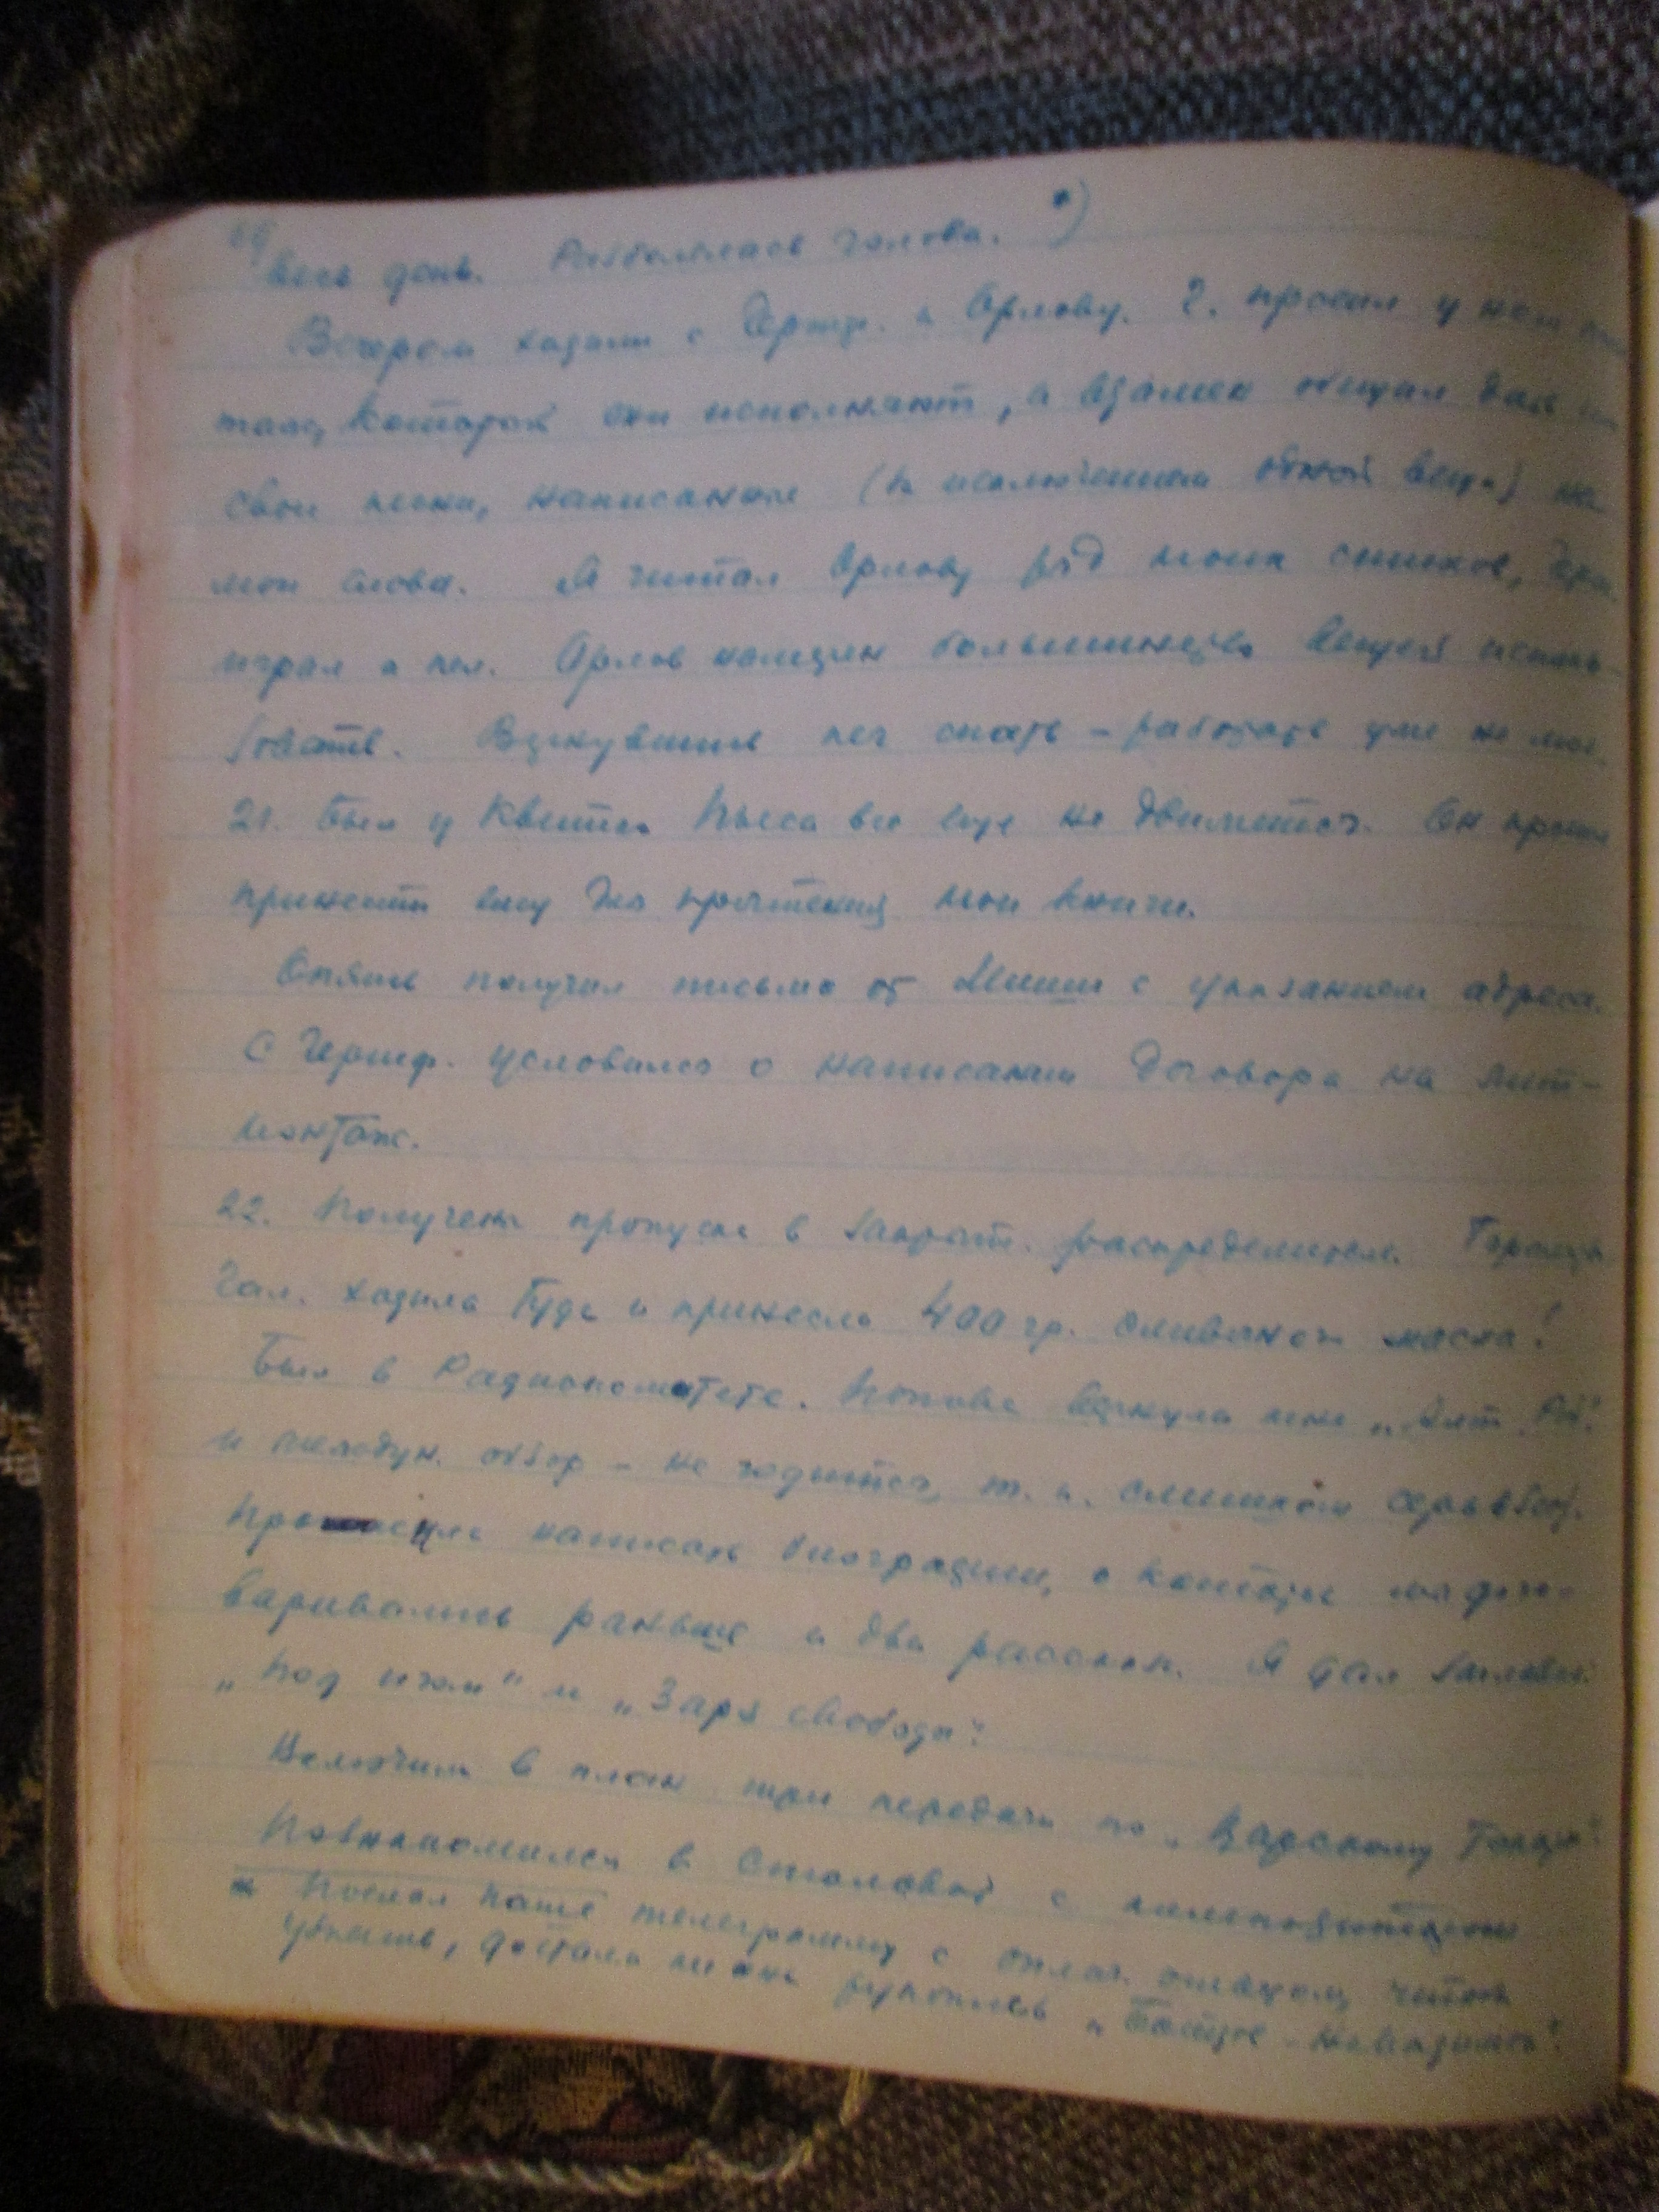 весь день. Разболелась голова. *)
Вечером ходили с Герши. к Орлову. Г. просил у него
которые они исполняют, а взамен обещал дать
свои песни, написанные (за исключением одной вещи) на
мои слова. Я читал Орлову ряд моих стихов, Герш.
играл и пел. Орлов намерен большинство вещей исполь-
зовать. Вернувшись лег спать – работать уже не мог.
21. Был у Квитко. Пьеса все еще не движется. Он просил
принести ему для прочтения мои книги.
Опять получил письмо от Миши с указанием адреса.
С Герши. условился о написании договора на лит-
монтаж.
22. Получены пропуска в закрыт. распределитель.
Гал. ходила туда и принесла 400 гр. сливочн. масла!
Был в Радиокомитете. Попова вернула мне „Лит.
и междун. обзор – не годится, т. к. слишком серьезн.
написать биографии, о которых мы дого-
варивались раньше и два рассказа. Я дал
„Под игом" и „Заря свободы".
Включили в план три передачи по „
Познакомился в столовой с
* Послал Паше телеграмму с оплач. ответом, чтобы
достала рукопись „Бойцы-невидимки".